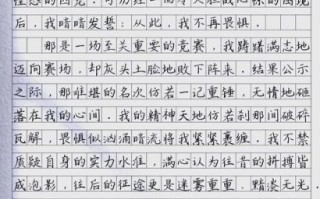 后，我暗暗发誓：从此，我不再畏惧。
那是一场至关重要的竞赛，我踌躇满志地
迈向赛场，却灰头土脸地败下阵来，结果公示
之际，那难堪的名次仿若一记重锤，无情地砸
落在我的心间。我的精神天地仿若刹那间破碎
瓦解，畏惧似汹涌暗流将我紧紧裹缠。我不禁
质疑自身的实力水准，满心认为往昔的拼搏皆
成泡影，往后的征途更是迷雾重重，黯淡无光，